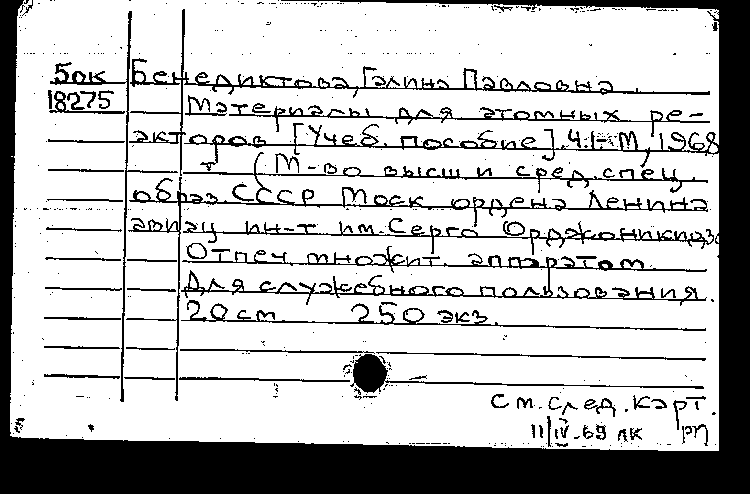 5ок Бенедиктова, Галина Павловна.
18275 Материалы для атомных ре-
акторов [Учеб. пособие]. Ч.1- М, 1968
т (М-во высш и сред. спец.
образ. СССР Моск. ордена Ленина
авиац ин-т им. Серго Орджоникидзе
Отпеч. множит. аппаратом.
Для служебного пользования.
20 см. 250 экз.
См. след. карт.
11/IV-69 лк рп